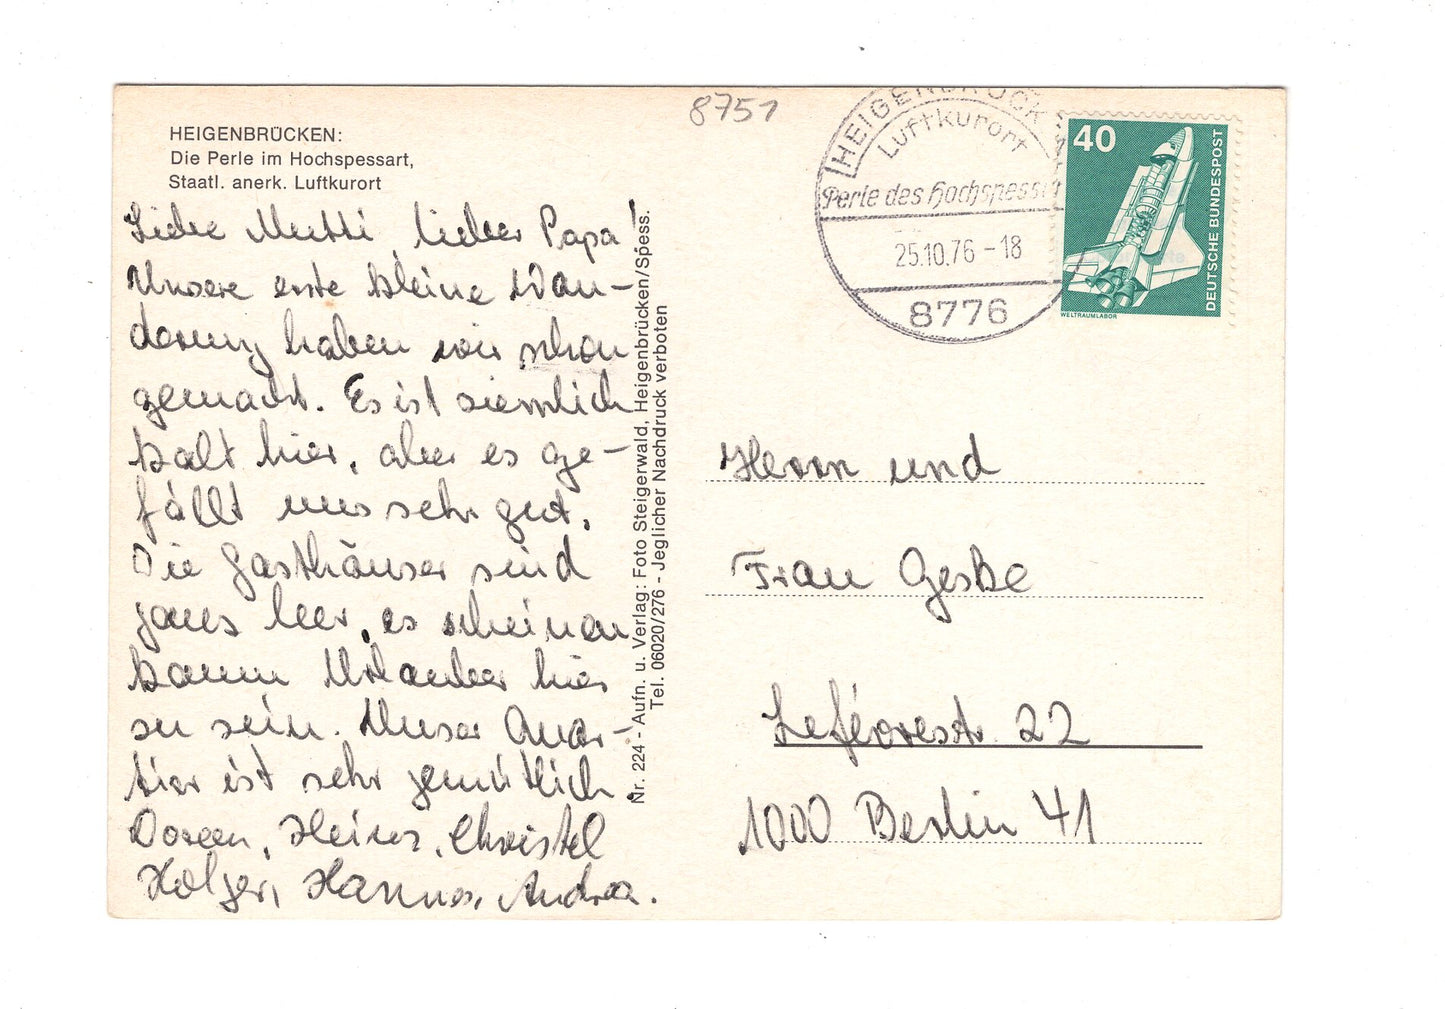 HEIGENBRÜCKEN:
Die Perle im Hochspessart,
Staatl. anerk. Luftkurort
Liebe Mutti, lieber Papa!
Unsere erste kleine Wan-
derung haben wir schon
gemacht. Es ist ziemlich
kalt hier, aber es ge-
fällt uns sehr gut.
Die Gasthäuser sind
ganz leer, es scheinen
kaum Urlauber hier
zu sein. Unser Quar-
tier ist sehr gemütlich.
Doreen, Heinz, Christel
Holger, Hannes, Andrea.
Nr. 224 - Aufn. u. Verlag: Foto Steigerwald, Heigenbrücken/Spess.
Tel. 06020/276 - Jeglicher Nachdruck verboten
8751
HEIGENBRÜCK
Luftkurort
Perle des Hochspessart
25.10.76 -18
8776
40
DEUTSCHE BUNDESPOST
WELTRAUMLABOR
Herrn und
Frau Geske
Lefévrestr. 22
1000 Berlin 41